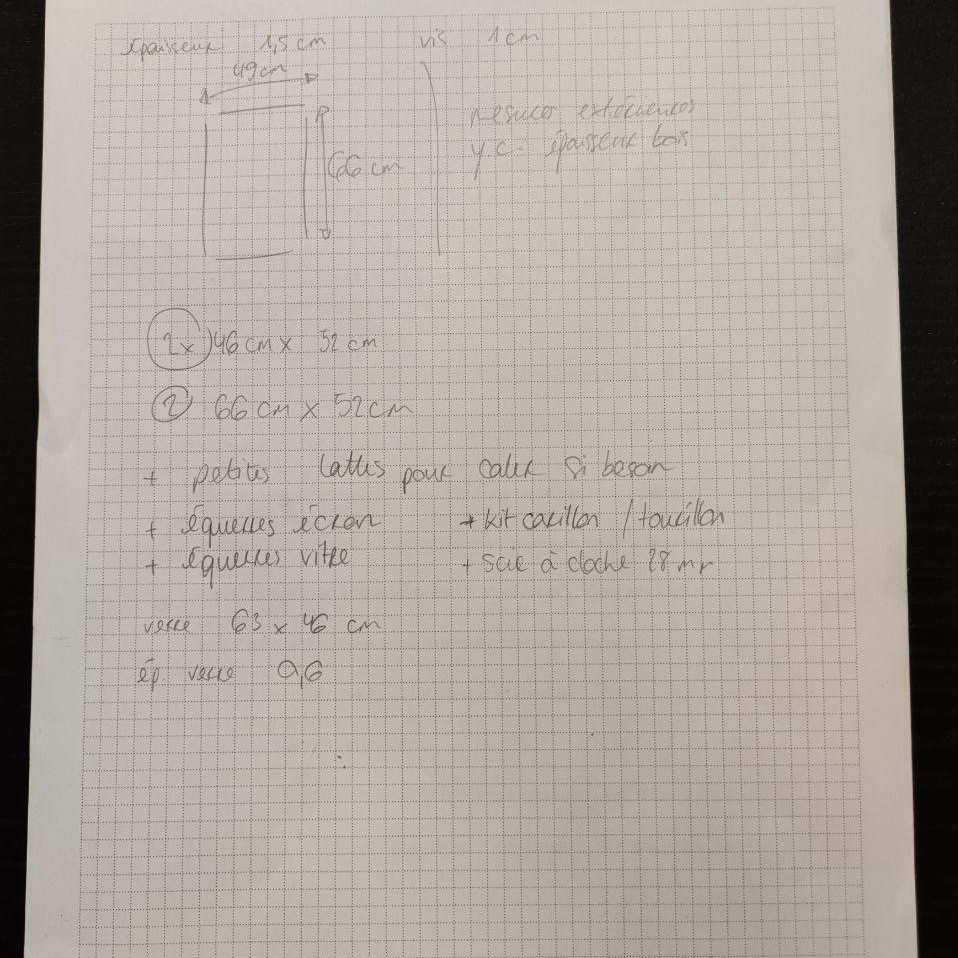 épaisseur 1,5 cm vis 1 cm
49cm
66 cm
mesures extérieures
y c. épaisseur bois
2x 46 cm x 52 cm
2 66 cm x 52 cm
+ petites lattes pour caler si besoin
+ équerres écran + kit carillon / tourillon
+ équerres vitre + scie à cloche 28 mm
verre 63 x 46 cm
ép verre 0,6